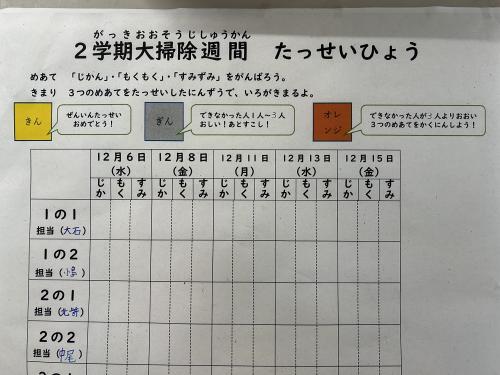 がっきおおそうじしゅうかん
2学期大掃除週間 たっせいひょう
めあて 「じかん」・「もくもく」・「すみずみ」をがんばろう。
きまり 3つのめあてをたっせいしたにんずうで、いろがきまるよ。
きん
ぜんいんたっせい
おめでとう！
ぎん
できなかった人1人～3人
おしい！あとすこし！
オレ
ンジ
できなかった人が3人よりおおい
3つのめあてをかくにんしよう！
12月6日 12月8日 12月11日 12月13日 12月15日
(水) (金) (月) (水) (金)
じか もく すみ じか もく すみ じか もく すみ じか もく すみ じか もく すみ
1の1
担当（大石）
1の2
担当（小島）
2の1
担当（ ）
2の2
担当（中尾）